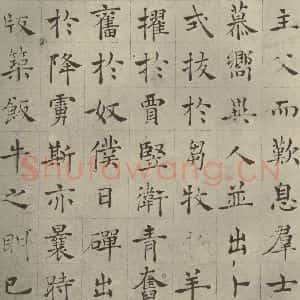 主父而歎息群士
慕嚮異人並出卜
式拔於芻牧羊
擢於賈豎衛青奮
舊於奴僕日磾出
於降虜斯亦曩時
版築飯牛之明已
Shufawang.CN